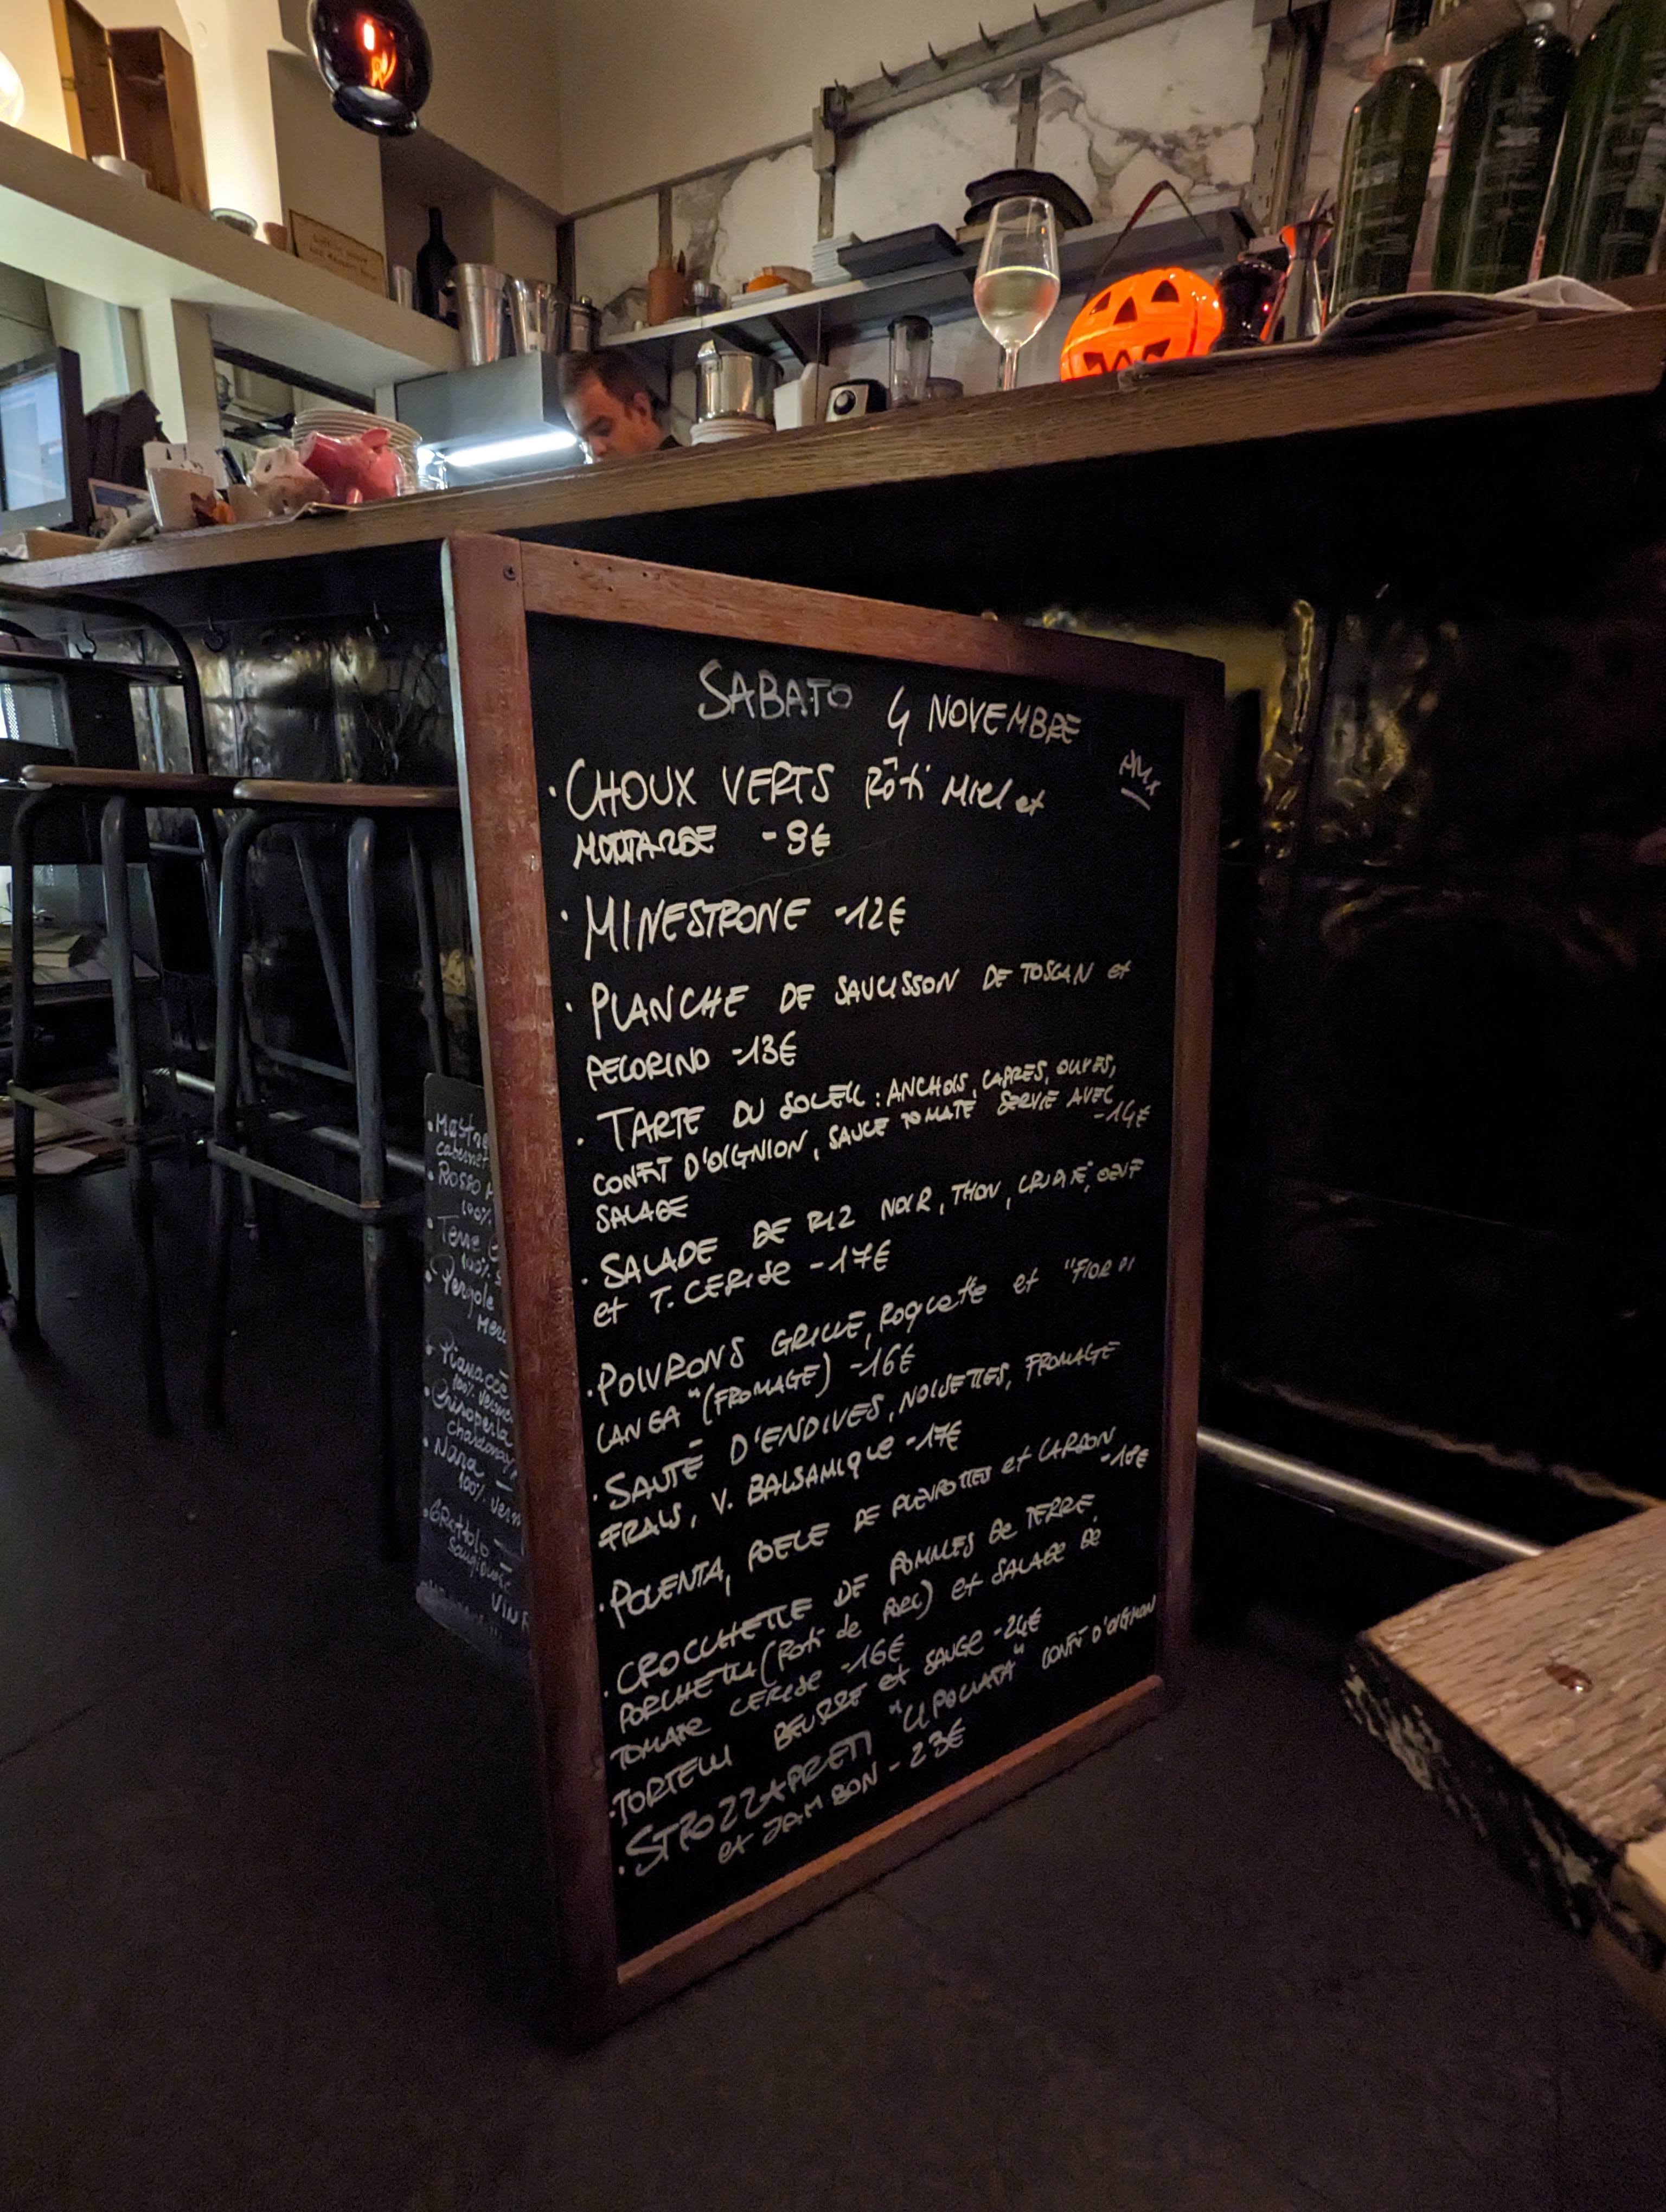 SABATO 4 NOVEMBRE
· CHOUX VERTS Rôti Miel et
MOUTARDE - 9€
· MINESTRONE - 12€
· PLANCHE DE SAUCISSON DE TOSCAN et
PECORINO - 13€
· TARTE DU SOLEIL : ANCHOIS, CAPRES, OLIVES,
CONFIT D'OIGNION, SAUCE TOMATE SERVIE AVEC
SALADE - 14€
· SALADE DE RIZ NOIR, THON, CRUDITÉ, OEUF
et T. CERISE - 17€
· POIVRONS GRILLÉ, Roquette et "FIOR DI
LANGA" (FROMAGE) - 16€
· SAUTÉ D'ENDIVES, NOISETTES, FROMAGE
FRAIS, V. BALSAMIQUE - 17€
· POLENTA, POELE DE PLEUROTTES et CARDON
- 18€
· CROCCHETTE DE POMMES DE TERRE,
PORCHETTA (Roti de Porc) et SALADE DE
TOMATE CERISE - 16€
· TORTELLI BEURRE et SAUGE - 24€
· STROZZAPRETI CONFIT D'OIGNON
et JAMBON - 23€
cabernet
· Rosso
100%
· Terre
100%
· Pergole
100%
chardonnay
· Nana
100%
· Grottolo